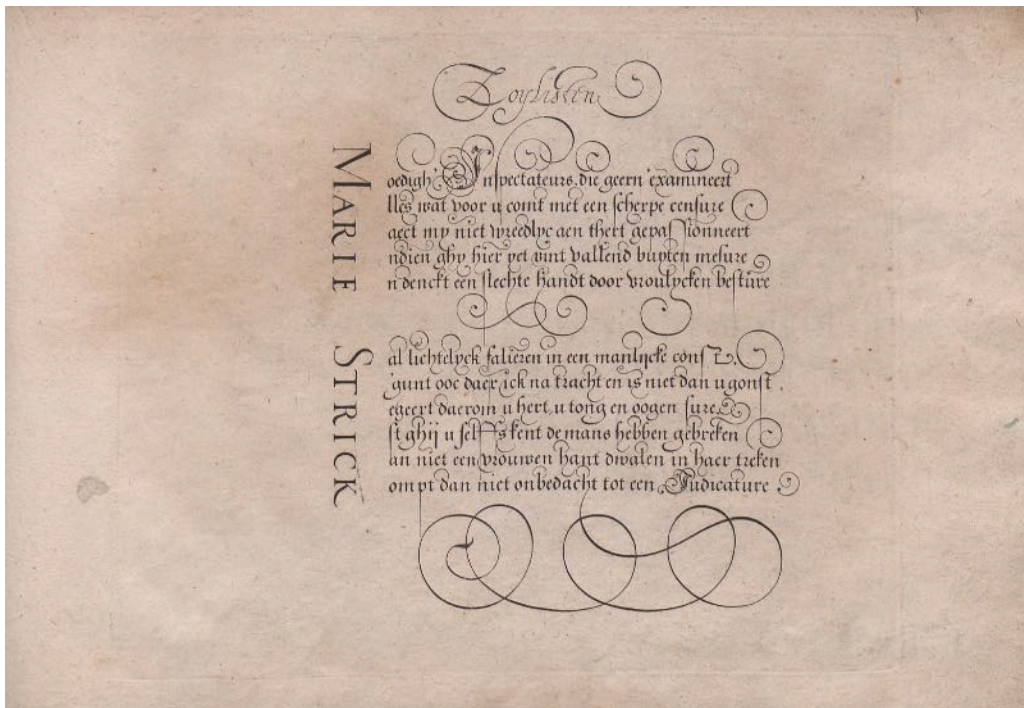 Zoylisten
MARIE STRICK
oedigh' Inspectateurs, die geern examineert
lles wat voor u comt met een scherpe censure
aect my niet wreedlyc aen thert gepassionneert
ndien ghy hier yet vint vallend buyten mesure
n denckt een slechte handt door vroulycken besture
al lichtelyck falieren in een manlycke const.
'gunt ooc daer ick na tracht en is niet dan u gonst.
egeert daerom u hert, u tong en oogen sure
st ghij u selfs kent de mans hebben gebreken
an niet een vrouwen hant dwalen in haer treken
ompt dan niet onbedacht tot een Iudicature